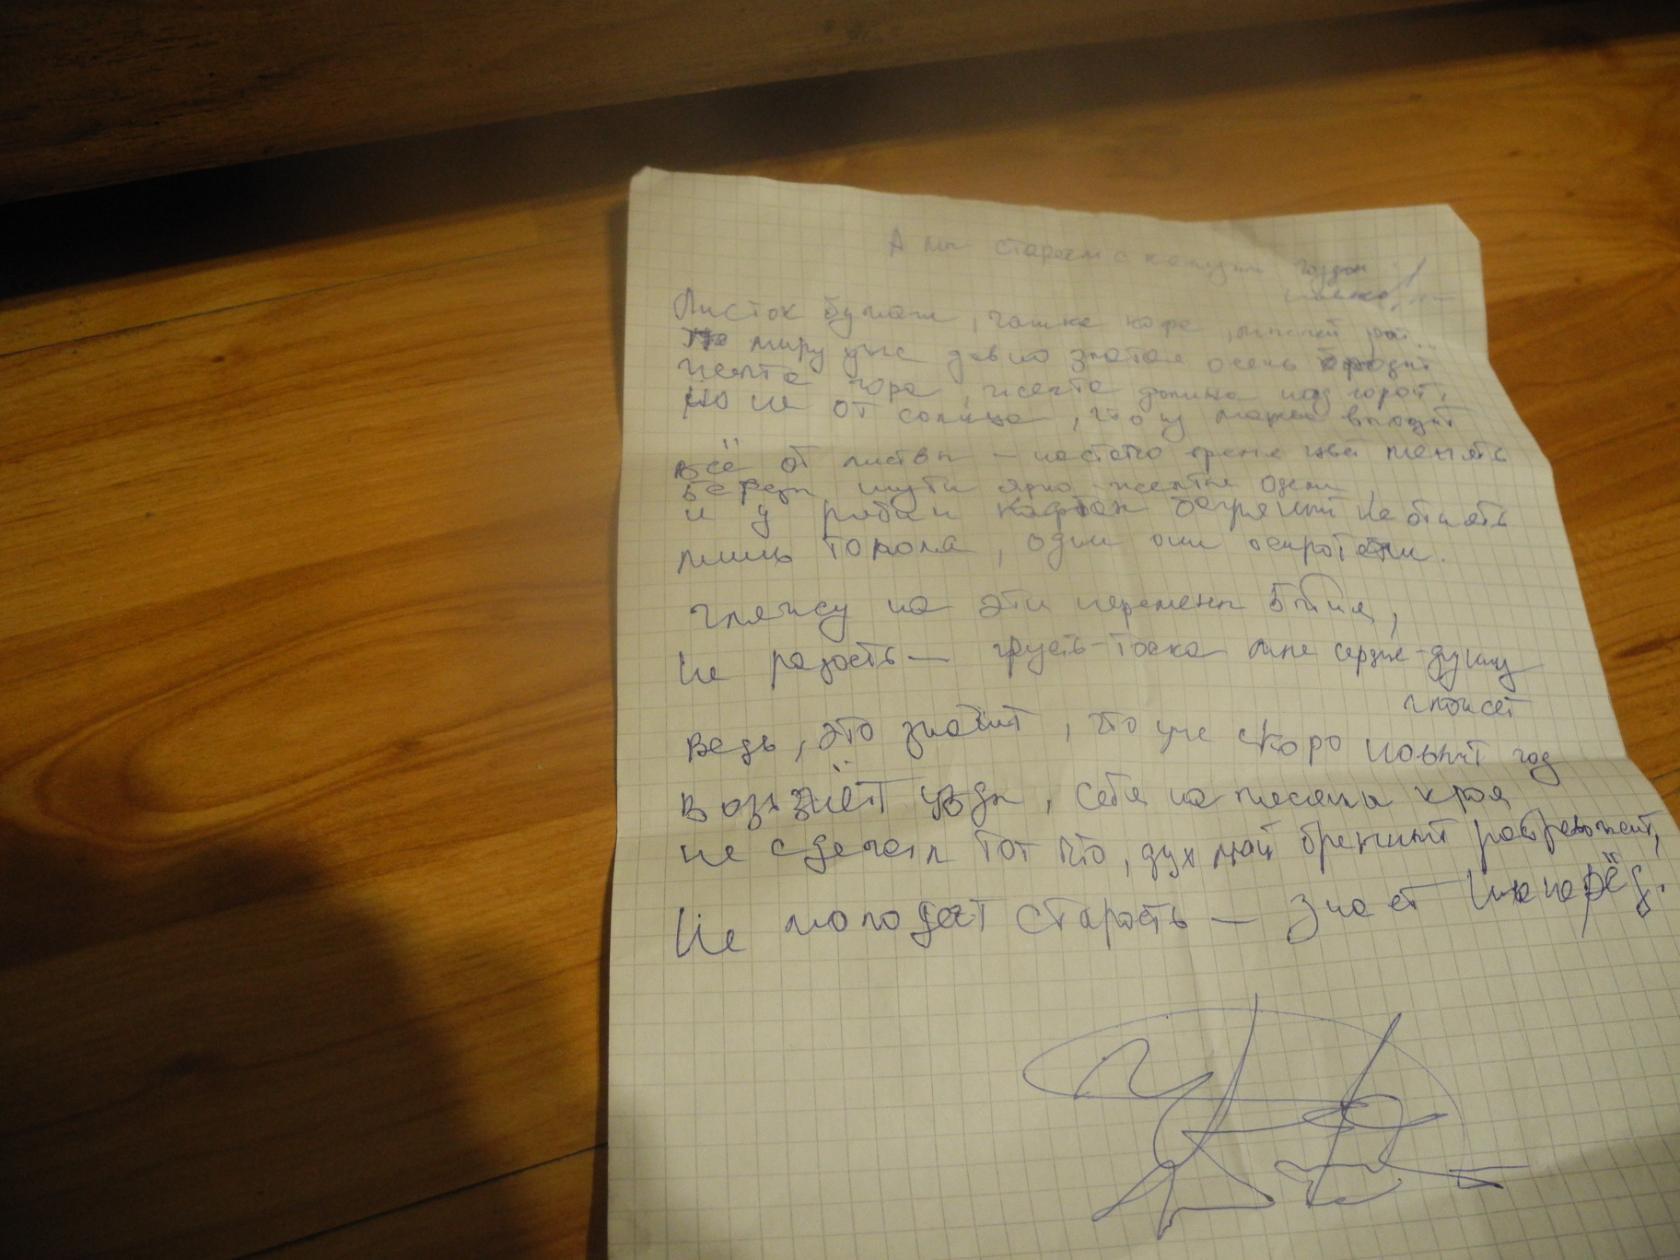 А мы стареем с каждым годом
Листок бумаги, чашка кофе,
По миру уже давно златая осень бродит
Желта гора, желта долина под горой,
Но не от солнца, что из выходит
Всё от листвы – настало время цвет менять
Берёзы шути ярко-желтые одели,
и у рябин кафтан багряный не отнять
лишь тополя, одни они осиротели.
Гляжу на эти перемены Бытия,
Не радость — грусть-тоска мне сердце-душу
гложет
Ведь, это значит, что уже скоро новый год
Возьмёт узды, себя на
не сделал я тот что, дух мой бренный растревожит,
Не молодёт старость — знает наперёд.